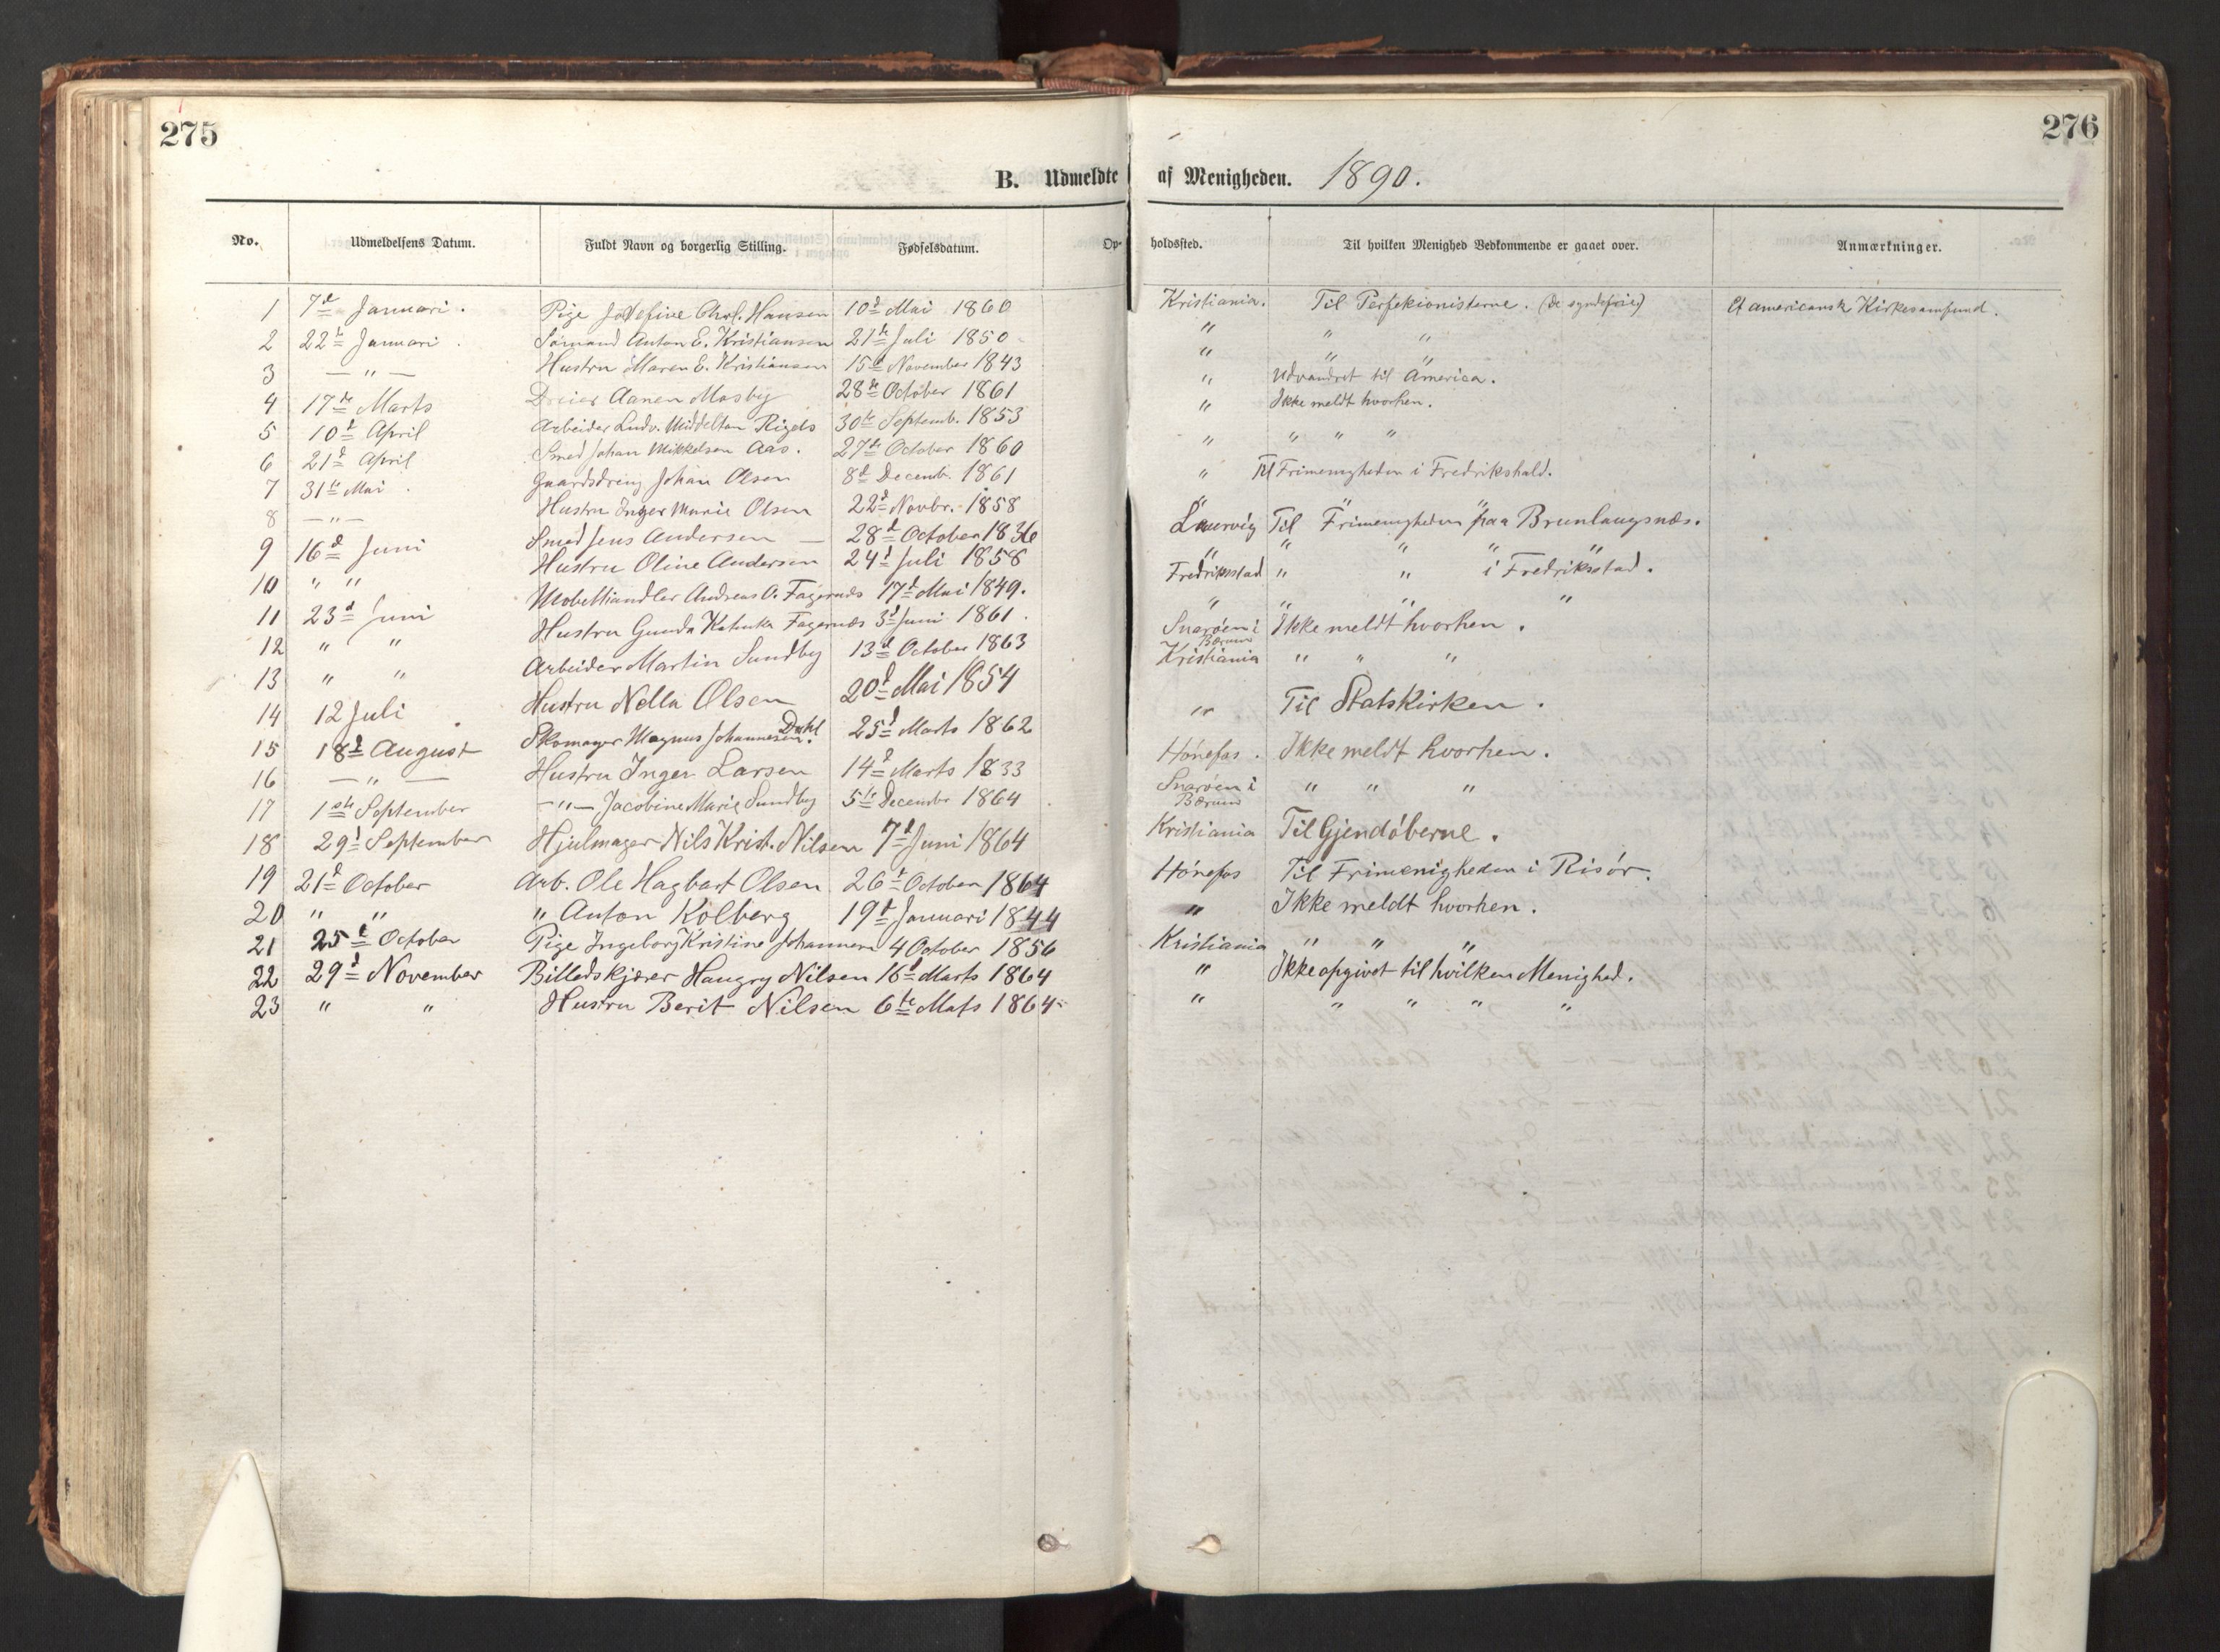 275
276
B. Udmeldte af Menigheden. 1890.
No. Udmeldelsens Datum. Fuldt Navn og borgerlig Stilling. Fødselsdatum. Op-holdssted. Til hvilken Menighed Vedkommende er gaaet over. Anmærkninger.
1 7d Januari. Pige Josefine Chrf. Hansen 10d Mai 1860 Kristiania. Til Perfekionisterne. (de syndefrie) Et americansk Kirkesamfund.
2 22de Januari. Sømand Anton E. Kristiansen 21de Juli 1850 " " "
3 — " — Hustru Maren E. Kristiansen 15d November 1843 " " "
4 17de Marts Dreier Aanen Mosby 28de October 1861 " Udvandret til America.
5 10d April Arbeider Ludv. Middelton Rigels 30te Septemb. 1853 " Ikke meldt hvorhen.
6 21d April Smed Johan Mikkelsen Aas. 27de October 1860 " " " "
7 31te Mai. Gaardsdreng Johan Olsen 8d Decemb. 1861 " Til Frimenigheden i Fredrikshald.
8 — " — Hustru Inger Marie Olsen 22d Novbr. 1858 " " " "
9 16d Juni Smed Jens Andersen — 28d October 1836 Laurvig Til Frimenigheden paa Brunlaugsnæs.
10 " " Hustru Oline Andersen 24d Juli 1858 " " " " "
11 23d Juni Mobelhandler Andreas O. Fagernæs 17d Mai 1849. Fredriksstad " " i Fredriksstad.
12 " " Hustru Gunda Katinka Fagernæs 3d Juni 1861. " " " "
13 " " Arbeider Martin Sundby 13d October 1863 Snarøen i Bærum Ikke meldt hvorhen.
14 12 Juli Hustru Nella Olsen 20d Mai 1854 Kristiania " " "
15 18d August Skomager Magnus Johannesen Dahl. 25d Marts 1862 " Til Statskirken.
16 — " — Hustru Inger Larsen 14d Marts 1833 Hønefos. Ikke meldt hvorhen.
17 1ste September — " — Jacobine Marie Sundby 5te Decembr 1864 Snarøen i Bærum " " "
18 29d September Hjulmager Nils Krist. Nilsen 7d Juni 1864 Kristiania Til Gjendøberne.
19 21d October Arb. Ole Hagbart Olsen 26d October 1864 Hønefos Til Frimenigheden i Risør.
20 " " " Anton Kolberg 19d Januari 1844 " Ikke meldt hvorhen.
21 25d October Pige Ingeborg Kristine Johannesen 4 October 1856 Kristiania " " "
22 29d November Billedskjærer Haugry Nilsen 16d Marts 1864 " Ikke opgivet til hvilken Menighed.
23 " " Hustru Berit Nilsen 6te Mats 1864 " " " " "